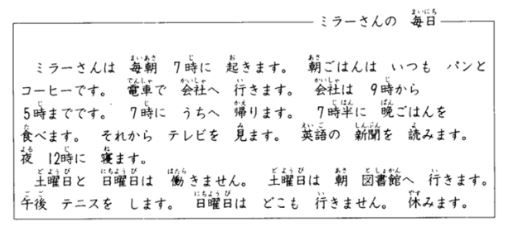 ミラーさんの 毎日
ミラーさんは 毎朝 7時に 起きます。 朝ごはんは いつも パンと
コーヒーです。 電車で 会社へ 行きます。 会社は 9時から
5時までです。 7時に うちへ 帰ります。 7時半に 晩ごはんを
食べます。 それから テレビを 見ます。 英語の 新聞を 読みます。
夜 12時に 寝ます。
土曜日と 日曜日は 働きません。 土曜日は 朝 図書館へ 行きます。
午後 テニスを します。 日曜日は どこも 行きません。 休みます。